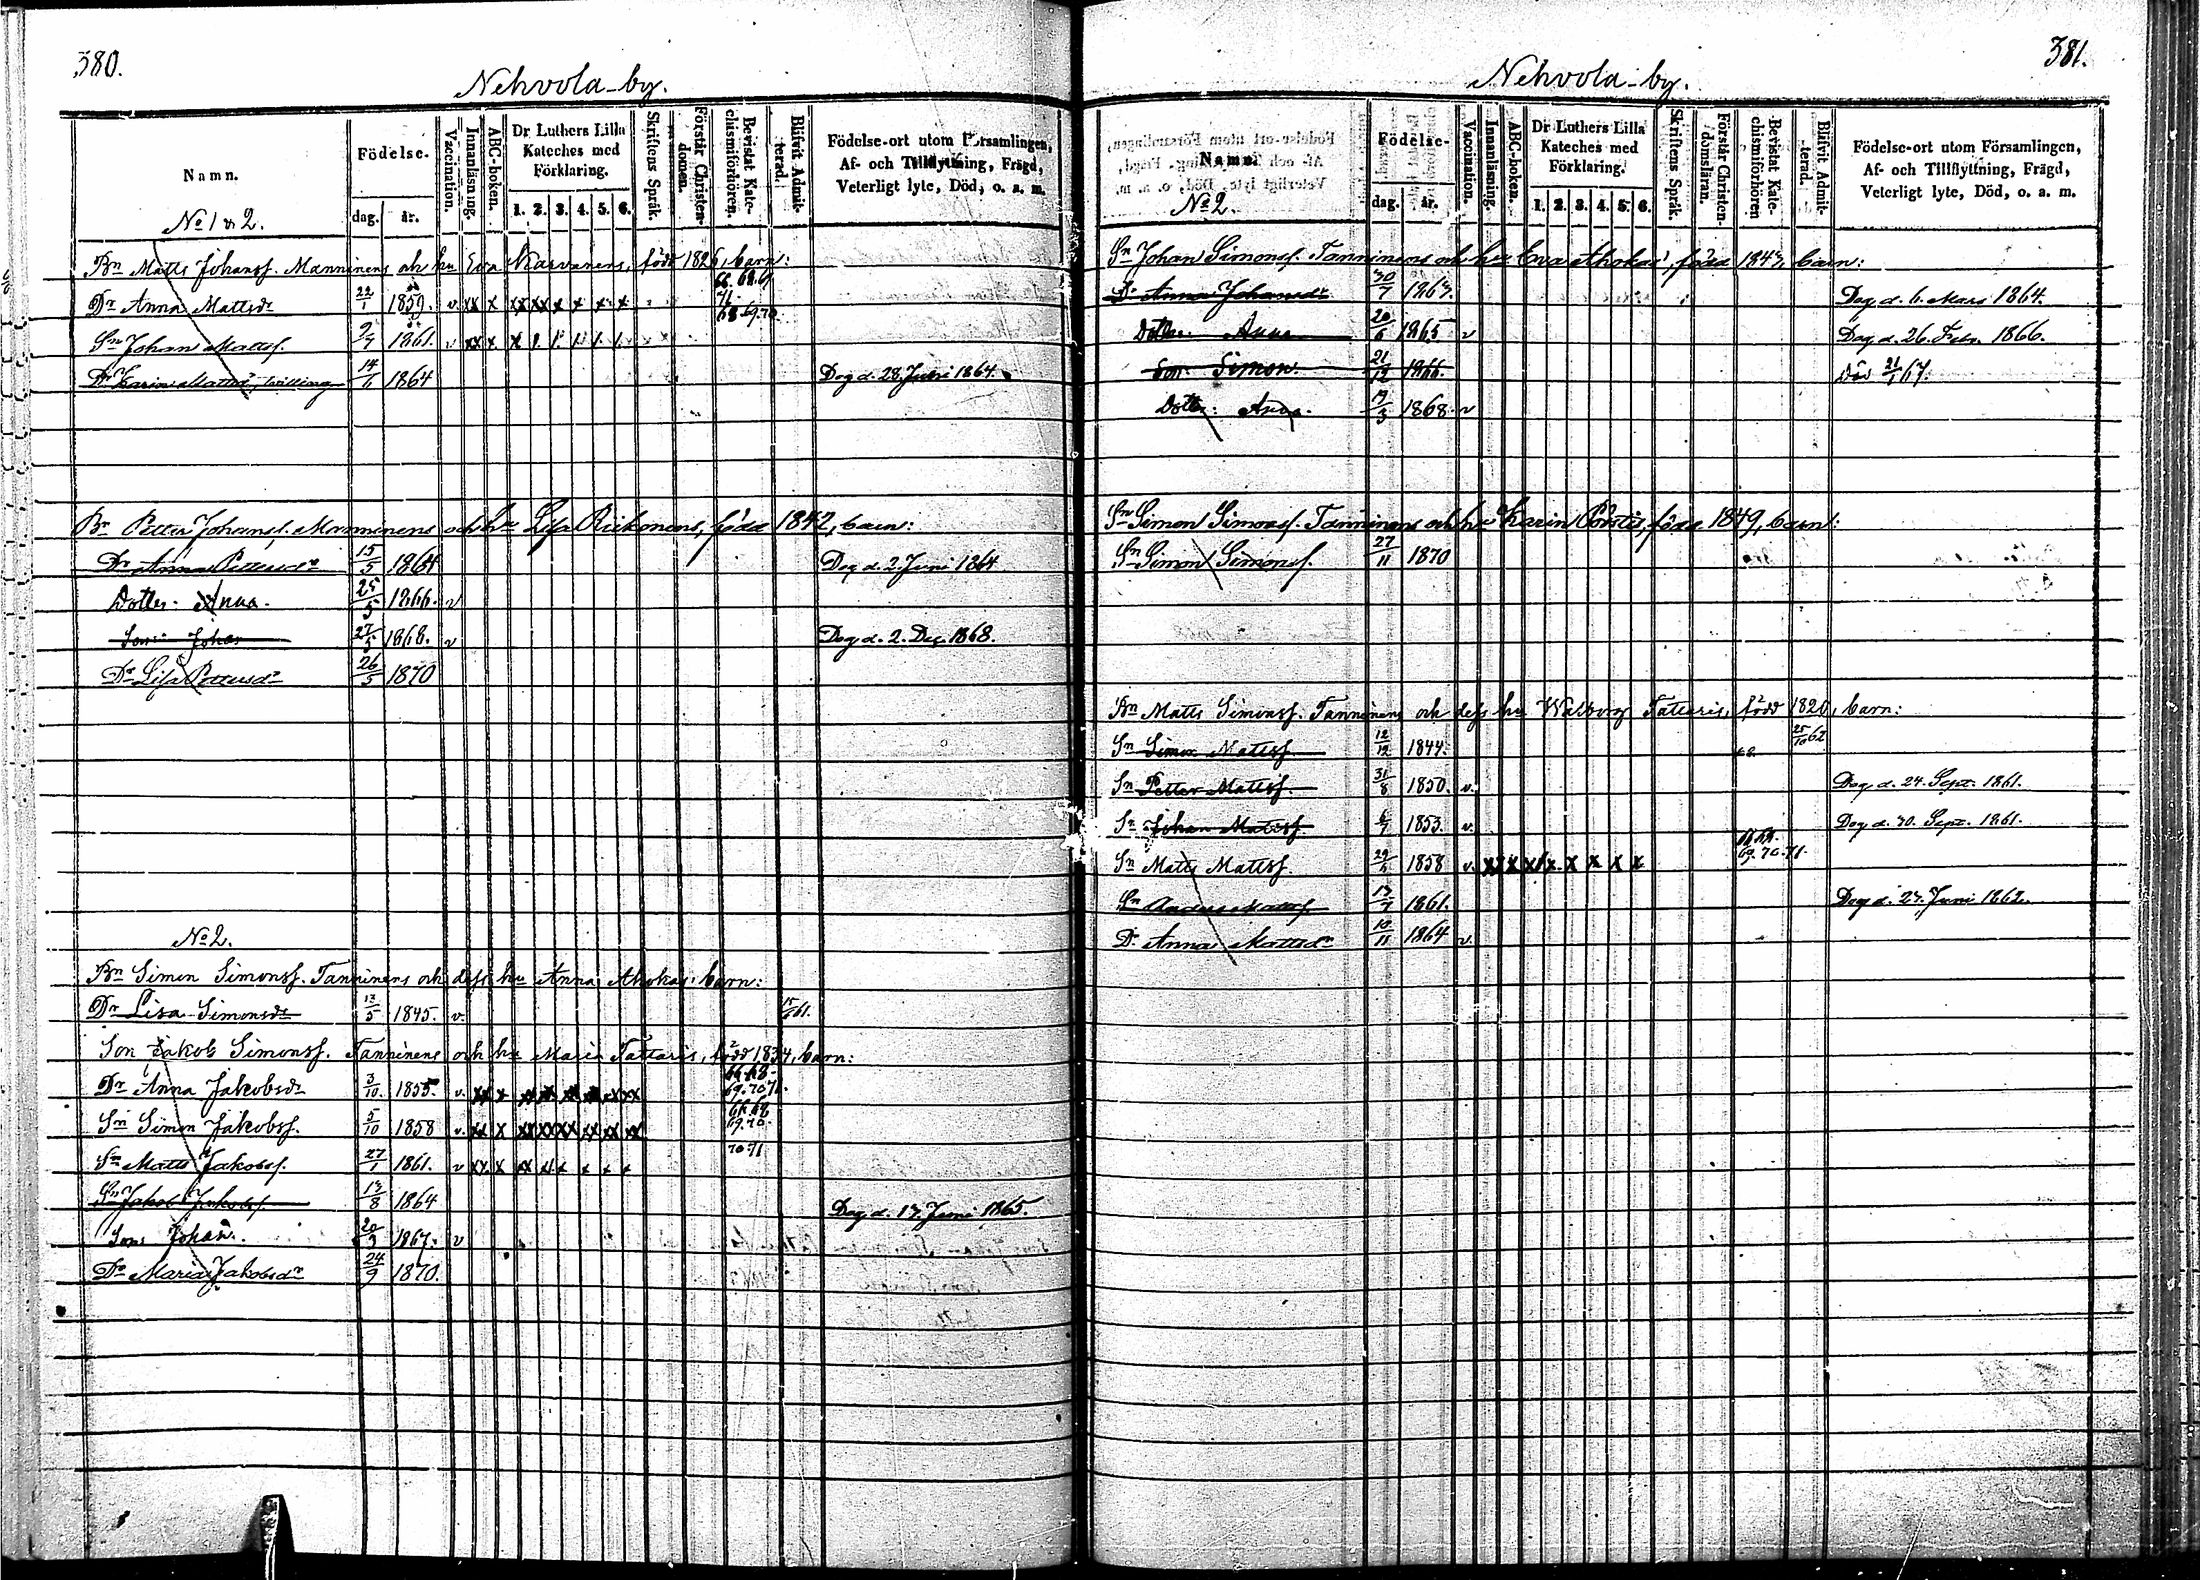 380.
Nehvola-by.
Namn.
Födelse.
dag.
år.
Vaccination.
Innanläsning.
ABC-boken.
Dr Luthers Lilla Kateches med Förklaring.
1. 2. 3. 4. 5. 6.
Skriftens Språk.
Förstår Christen-domen.
Bevistat Kate-chismiförhören.
Blifvit Admit-terad.
Födelse-ort utom Församlingen,
Af- och Tillflyttning, Frägd,
Veterligt lyte, Död, o. a. m.
No 1 & 2.
Bn Matts Johanss. Manninens och hu Eva Karvanens, född 1826, barn:
Dr Anna Mattsdr 22/1 1859. v. xx x xx xx x x x x 66. 68. 69 71.
Sn Johan Mattss. 9/7 1861. v xx x. 68. 69. 70.
Dr Karin Mattsdr, tvilling 14/6 1864 Dog d. 28. Juni 1864.
Bn Petter Johanss. Manninens och hu Lisa Rickonens, född 1842, barn:
Dr Anna Pettersdr 15/5 1864 Dog d. 2. Juni 1864
Dotter. Anna. 25/5 1866. v
Son: Johan 27/5 1868. v Dog d. 2. Dec. 1868.
Dr Lisa Pettersdr 26/5 1870
No 2.
Bn Simon Simonss. Tanninens och dess hu Anna Ahokas' barn:
Dr Lisa Simonsdr 13/5 1845. v. 15/6 61.
Son Jakob Simonss. Tanninens och hu Maria Tattaris, född 1834, barn:
Dr Anna Jakobsdr 3/10. 1855. v. xx x 66. 68. 69. 70 71.
Sn Simon Jakobss. 5/10 1858 v. xx x xx xx xx xx xx xx 66. 68 69. 70.
Sn Matts Jakobss. 27/1 1861. v xx x xx xx x x x x 70 71
Sn Jakob Jakobss. 13/8 1864 Dog d. 17. Juni 1865.
Son: Johan. 20/3 1867. v
Dr Maria Jakobsdr 24/9 1870.
381.
Nehvola-by.
Namn.
Födelse-
dag.
år.
Vaccination.
Innanläsning.
ABC-boken.
Dr Luthers Lilla Kateches med Förklaring.
1. 2. 3. 4. 5. 6.
Skriftens Språk.
Förstår Christen-domsläran.
Bevistat Kate-chismiförhören
Blifvit Admit-terad.
Födelse-ort utom Församlingen,
Af- och Tillflyttning, Frägd,
Veterligt lyte, Död, o. a. m.
No 2.
Sn Johan Simonss. Tanninens och hu Eva Ahokas', född 1843, barn:
Dr Anna Johansdr 30/7 1863. Dog d. 6. Mars 1864.
Dotter. Anna 20/6 1865 v Dog d. 26. Febr. 1866.
Son Simon. 21/12 1866. Död 21/1 67.
Dotter: Anna. 19/3 1868. v
Sn Simon Simonss. Tanninens och hu Karin Pöntis, född 1849, barn:
Sn Simon Simonss. 27/11 1870
Bn Matts Simonss. Tanninens och dess hu Walborg Tattaris, född 1820, barn:
Sn Simon Mattss. 12/12 1844. 25/10 62
Sn Petter Mattss. 31/8 1850. v. Dog d. 24. Sept. 1861.
Sn Johan Mattss. 6/7 1853. v. Dog d. 30. Sept. 1861.
Sn Matts Mattss. 1858 v. x x x x. x x x x 69. 70. 71.
Sn Anders Mattss. 13/7 1861. Dog d. 27. Juni 1862.
Dr Anna Mattsdr 10/11 1864 v.